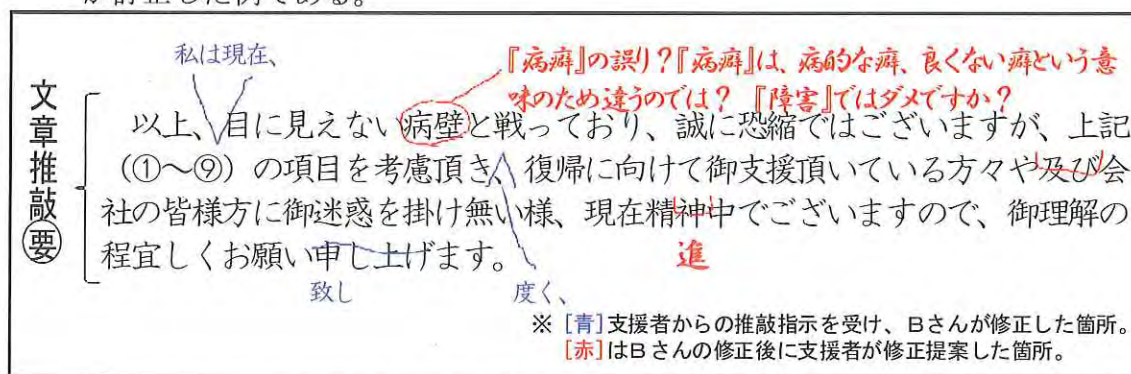 が訂正した例である。
私は現在、
『病癖』の誤り?『病癖』は、病的な癖、良くない癖という意
味のため違うのでは? 『障害』ではダメですか?
文章推敲要
以上、目に見えない病壁と戦っており、誠に恐縮ではございますが、上記
(①～⑨)の項目を考慮頂き、復帰に向けて御支援頂いている方々や及び会
社の皆様方に御迷惑を掛け無い様、現在精神中でございますので、御理解の
程宜しくお願い申し上げます。
進
致し
度く、
※ [青]支援者からの推敲指示を受け、Bさんが修正した箇所。
[赤]はBさんの修正後に支援者が修正提案した箇所。